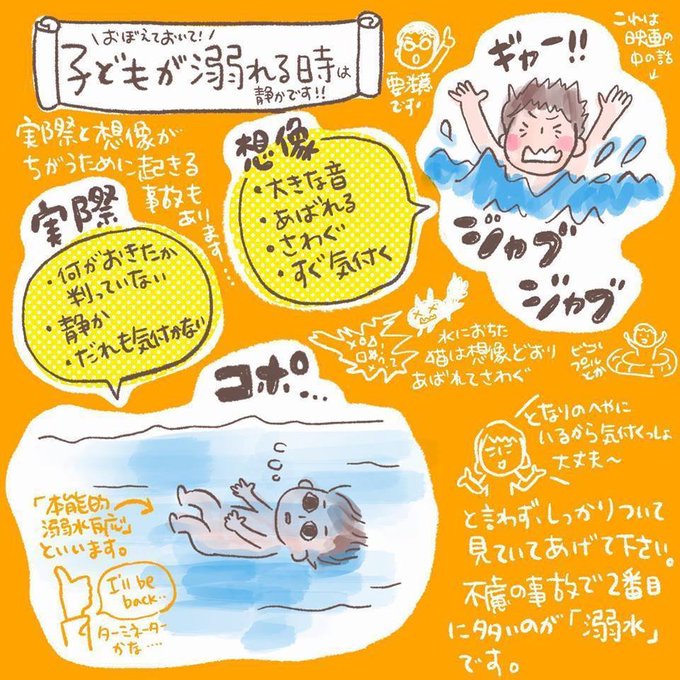 おぼえておいて!
子どもが溺れる時は
静かです!!
要注意
です!
これは
映画の
中の話
ギャー!!
実際と想像が
ちがうために起きる
事故も
あります…
想像
・大きな音
・あばれる
・さわぐ
・すぐ気付く
ジャブ
ジャブ
実際
・何がおきたか
判っていない
・静か
・だれも気付かない
水におちた
猫は想像どおり
あばれてさわぐ
ビニール
プールとか
コポ…
となりのへやに
いるから気付くっしょ
大丈夫～
「本能的
溺水反応」
といいます。
I'll be
back…
ターミネーター
かな……
と言わず、しっかりついて
見ていてあげて下さい。
不慮の事故で2番目
に多いのが「溺水」
です。